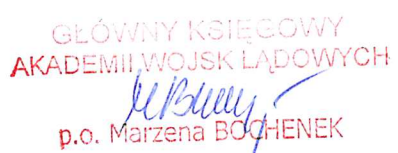 GŁÓWNY KSIĘGOWY
AKADEMII WOJSK LĄDOWYCH
p.o. Marzena BOCHENEK